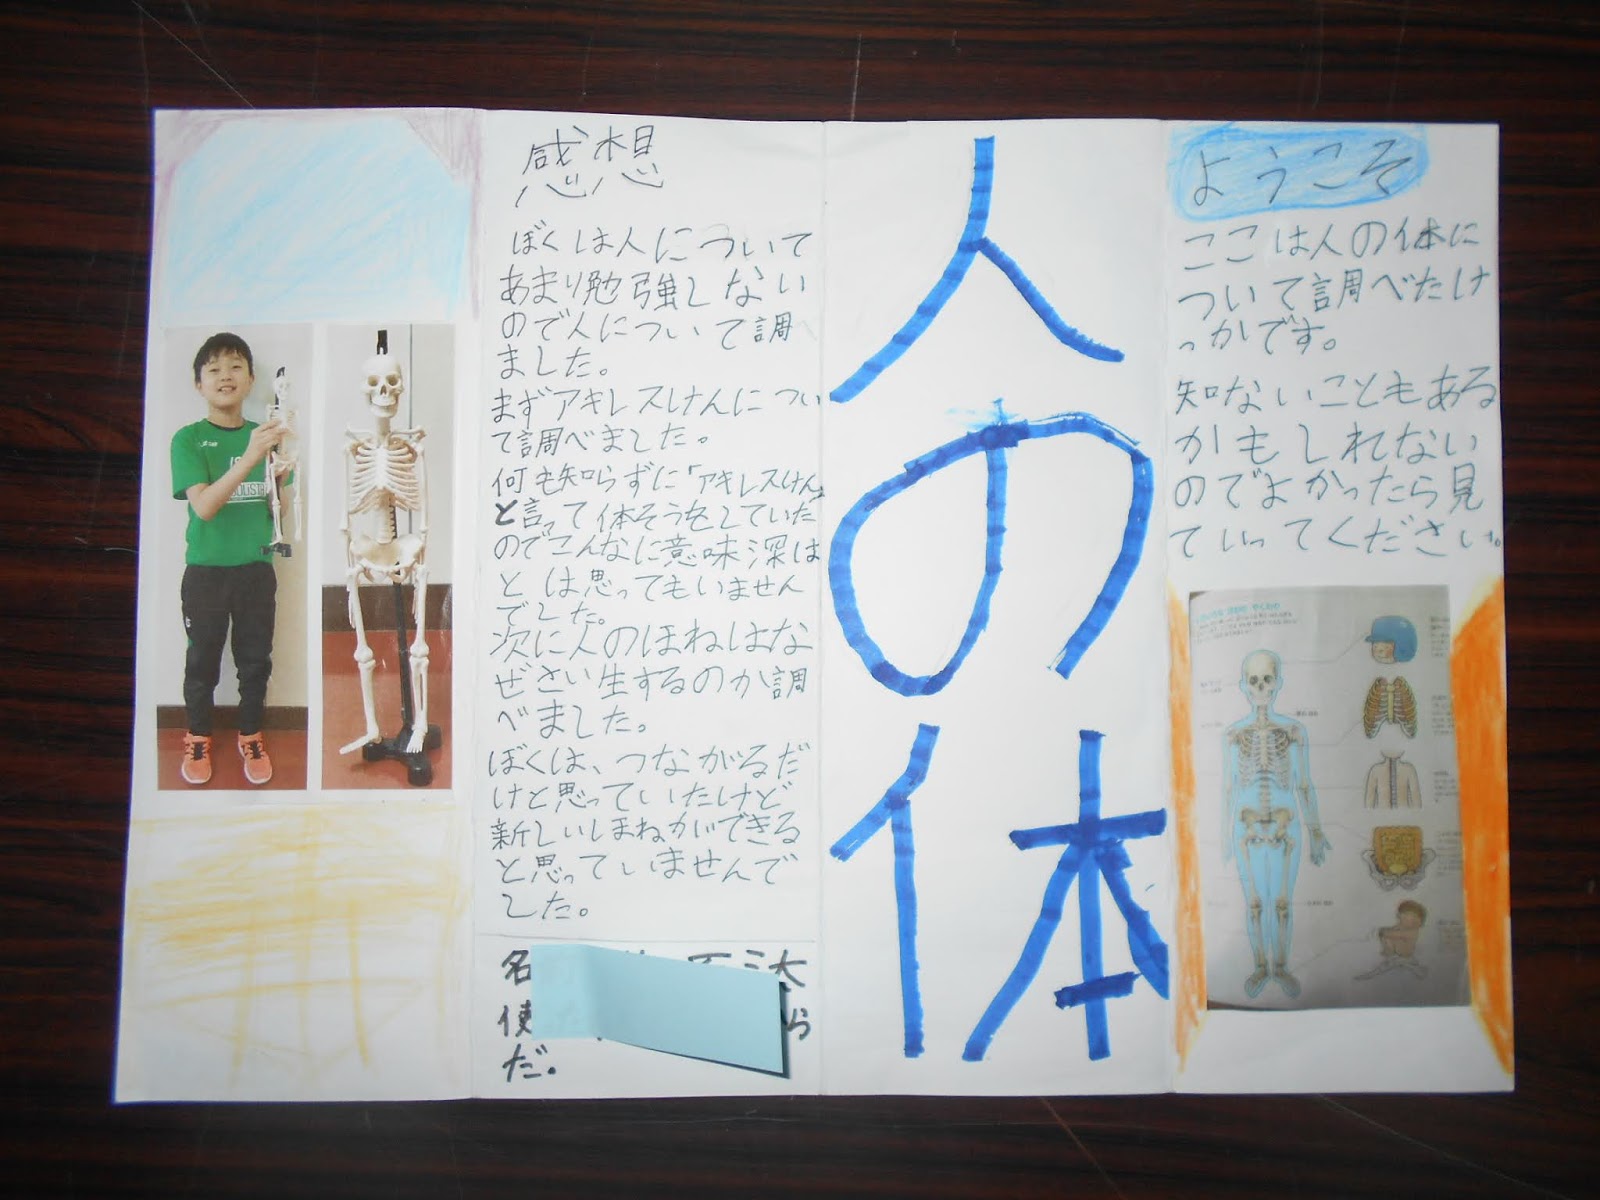 感想
ぼくは人について
あまり勉強しない
ので人について調べ
ました。
まずアキレスけんについ
て調べました。
何も知らずに「アキレスけん」
と言って体そうをしていた
のでこんなに意味深は
とは思ってもいません
でした。
次に人のほねはな
ぜさい生するのか調
べました。
ぼくは、つながるだ
けと思っていたけど
新しいほねができる
と思っていませんで
した。
名 汰
使 ら
だ。
人の体
ようこそ
ここは人の体に
ついて調べたけ
っかです。
知ないこともある
かもしれない
のでよかったら見
ていってください。